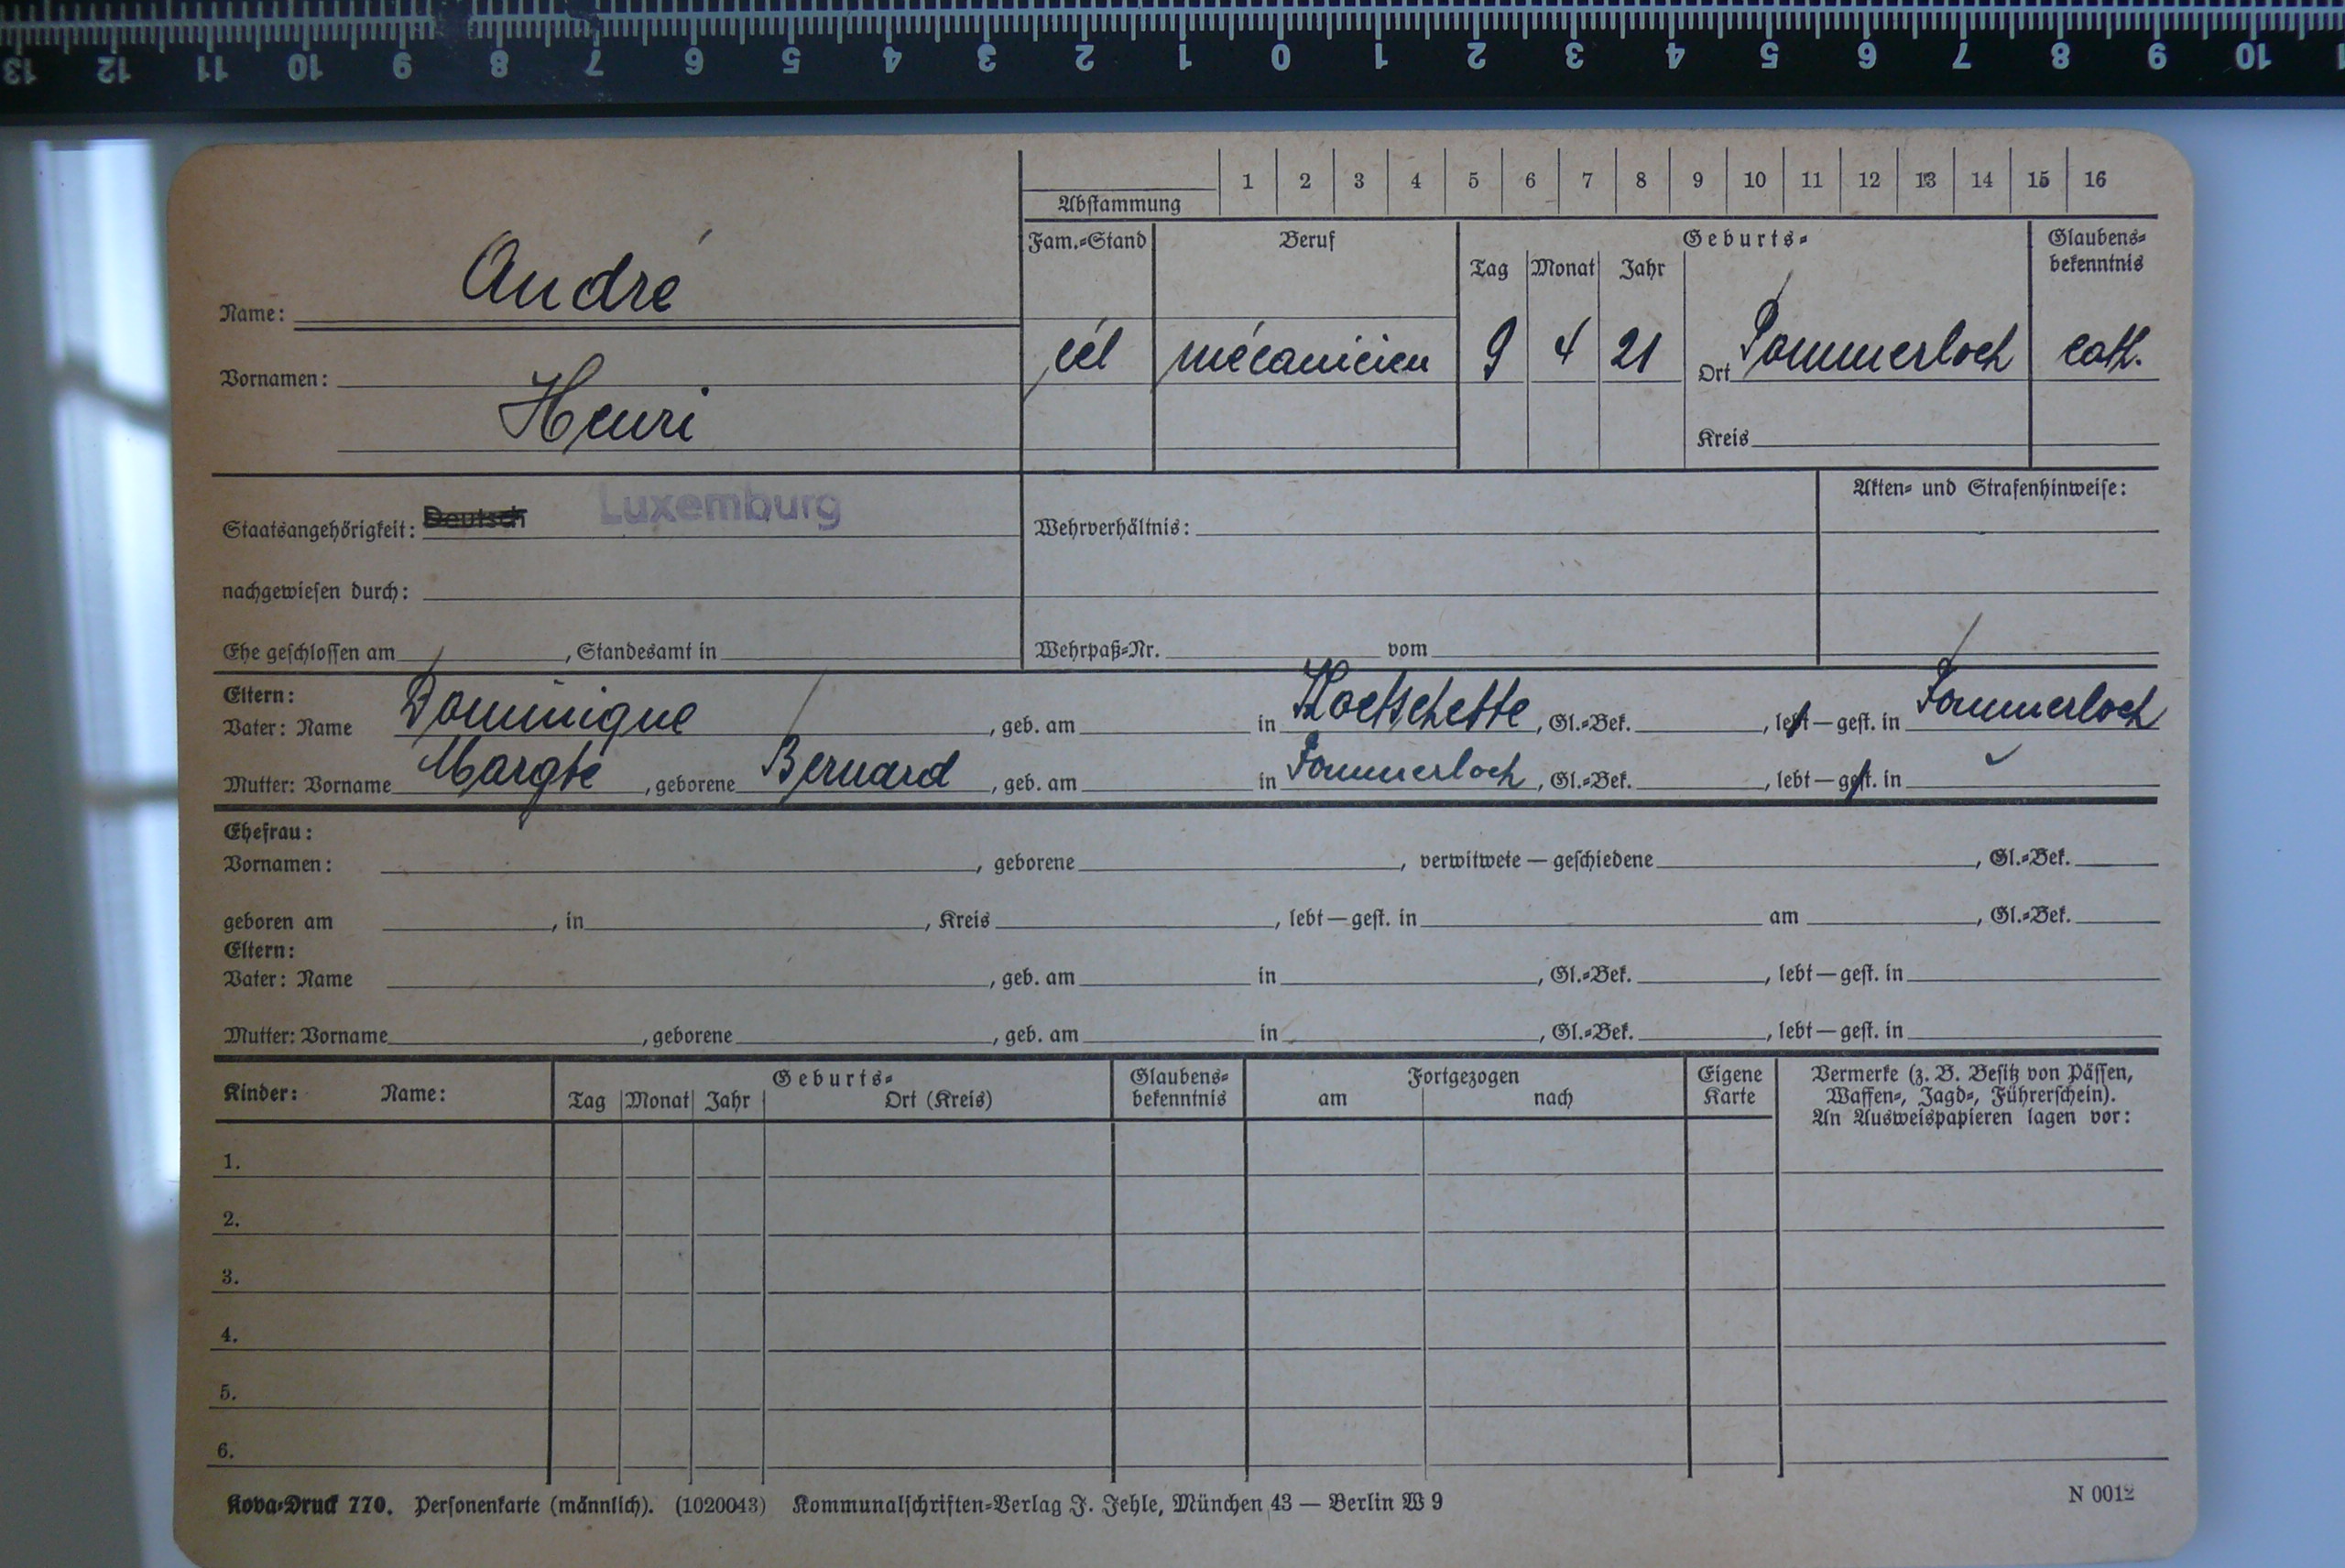 13 12 11 10 9 8 7 6 5 4 3 2 1 0 1 2 3 4 5 6 7 8 9 10
1 2 3 4 5 6 7 8 9 10 11 12 13 14 15 16
Abstammung
Name: André
Vornamen: Henri
Fam.-Stand
cél
Beruf
mécanicien
Geburts-
Tag Monat Jahr
9 4 21 Ort Pommerloch
Kreis
Glaubens-
bekenntnis
cath.
Staatsangehörigkeit: Deutsch Luxemburg
nachgewiesen durch:
Ehe geschlossen am , Standesamt in
Wehrverhältnis:
Wehrpaß-Nr. vom
Akten- und Strafenhinweise:
Eltern:
Vater: Name Dominique , geb. am in Koetschette , Gl.-Bek. , lebt — gest. in Pommerloch
Mutter: Vorname Margte , geborene Bernard , geb. am in Pommerloch , Gl.-Bek. , lebt — gest. in
Ehefrau:
Vornamen: , geborene , verwitwete — geschiedene , Gl.-Bek.
geboren am , in , Kreis , lebt — gest. in am , Gl.-Bek.
Eltern:
Vater: Name , geb. am in , Gl.-Bek. , lebt — gest. in
Mutter: Vorname , geborene , geb. am in , Gl.-Bek. , lebt — gest. in
Kinder: Name:
Geburts-
Tag Monat Jahr Ort (Kreis)
Glaubens-
bekenntnis
Fortgezogen
am nach
Eigene
Karte
Vermerke (z. B. Besitz von Pässen,
Waffen-, Jagd-, Führerschein).
An Ausweispapieren lagen vor:
1.
2.
3.
4.
5.
6.
Kova-Druck 770. Personenkarte (männlich). (1020043) Kommunalschriften-Verlag J. Jehle, München 43 — Berlin W 9
N 0012